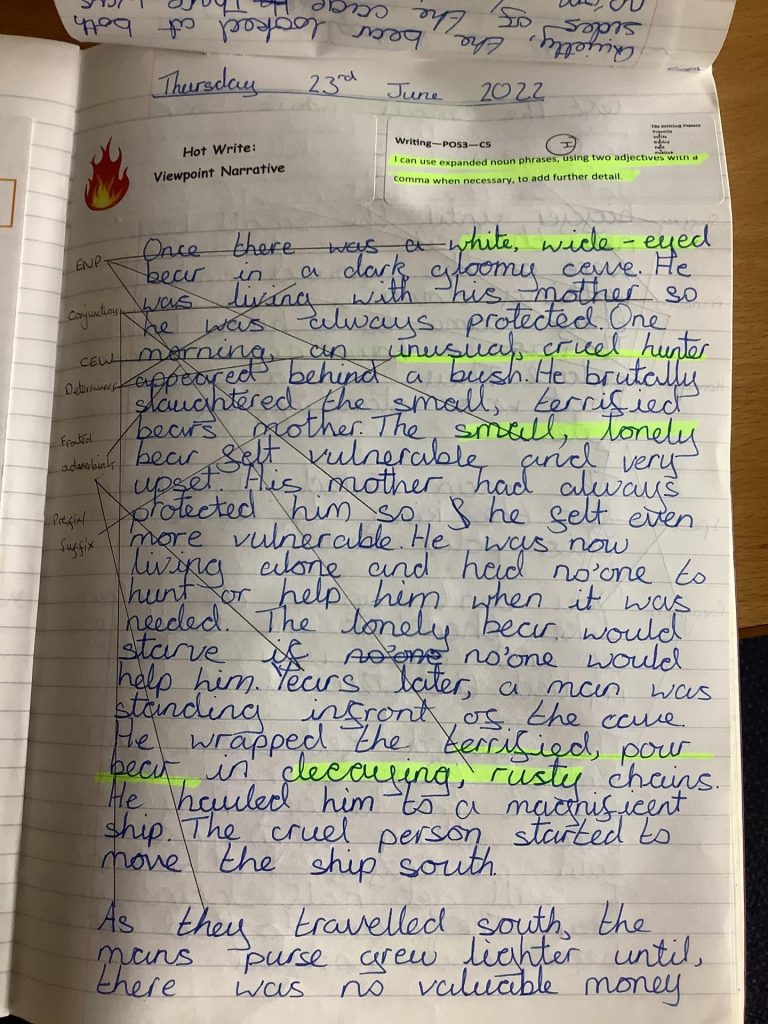 Quietly, the bear looked at both
sides of the cage
Thursday 23rd June 2022
Hot Write:
Viewpoint Narrative
Writing—POS3—C5
I
The Writing Process
I can use expanded noun phrases, using two adjectives with a
comma when necessary, to add further detail.
ENP
Conjunctions
CEW
Determiners
Fronted
adverbials
Prefix/
Suffix
Once there was a white, wide-eyed
bear in a dark, gloomy cave. He
was living with his mother so
he was always protected. One
morning, an unusual, cruel hunter
appeared behind a bush. He brutally
slaughtered the small, terrified
bears mother. The small, lonely
bear felt vulnerable and very
upset. His mother had always
protected him so he felt even
more vulnerable. He was now
living alone and had no'one to
hunt or help him when it was
needed. The lonely bear would
starve if no'one no'one would
help him. Years later, a man was
standing infront of the cave.
He wrapped the terrified, pour
bear in decaying, rusty chains.
He hauled him to a magnificent
ship. The cruel person started to
move the ship south.
As they travelled south, the
mans purse grew lighter until,
there was no valuable money